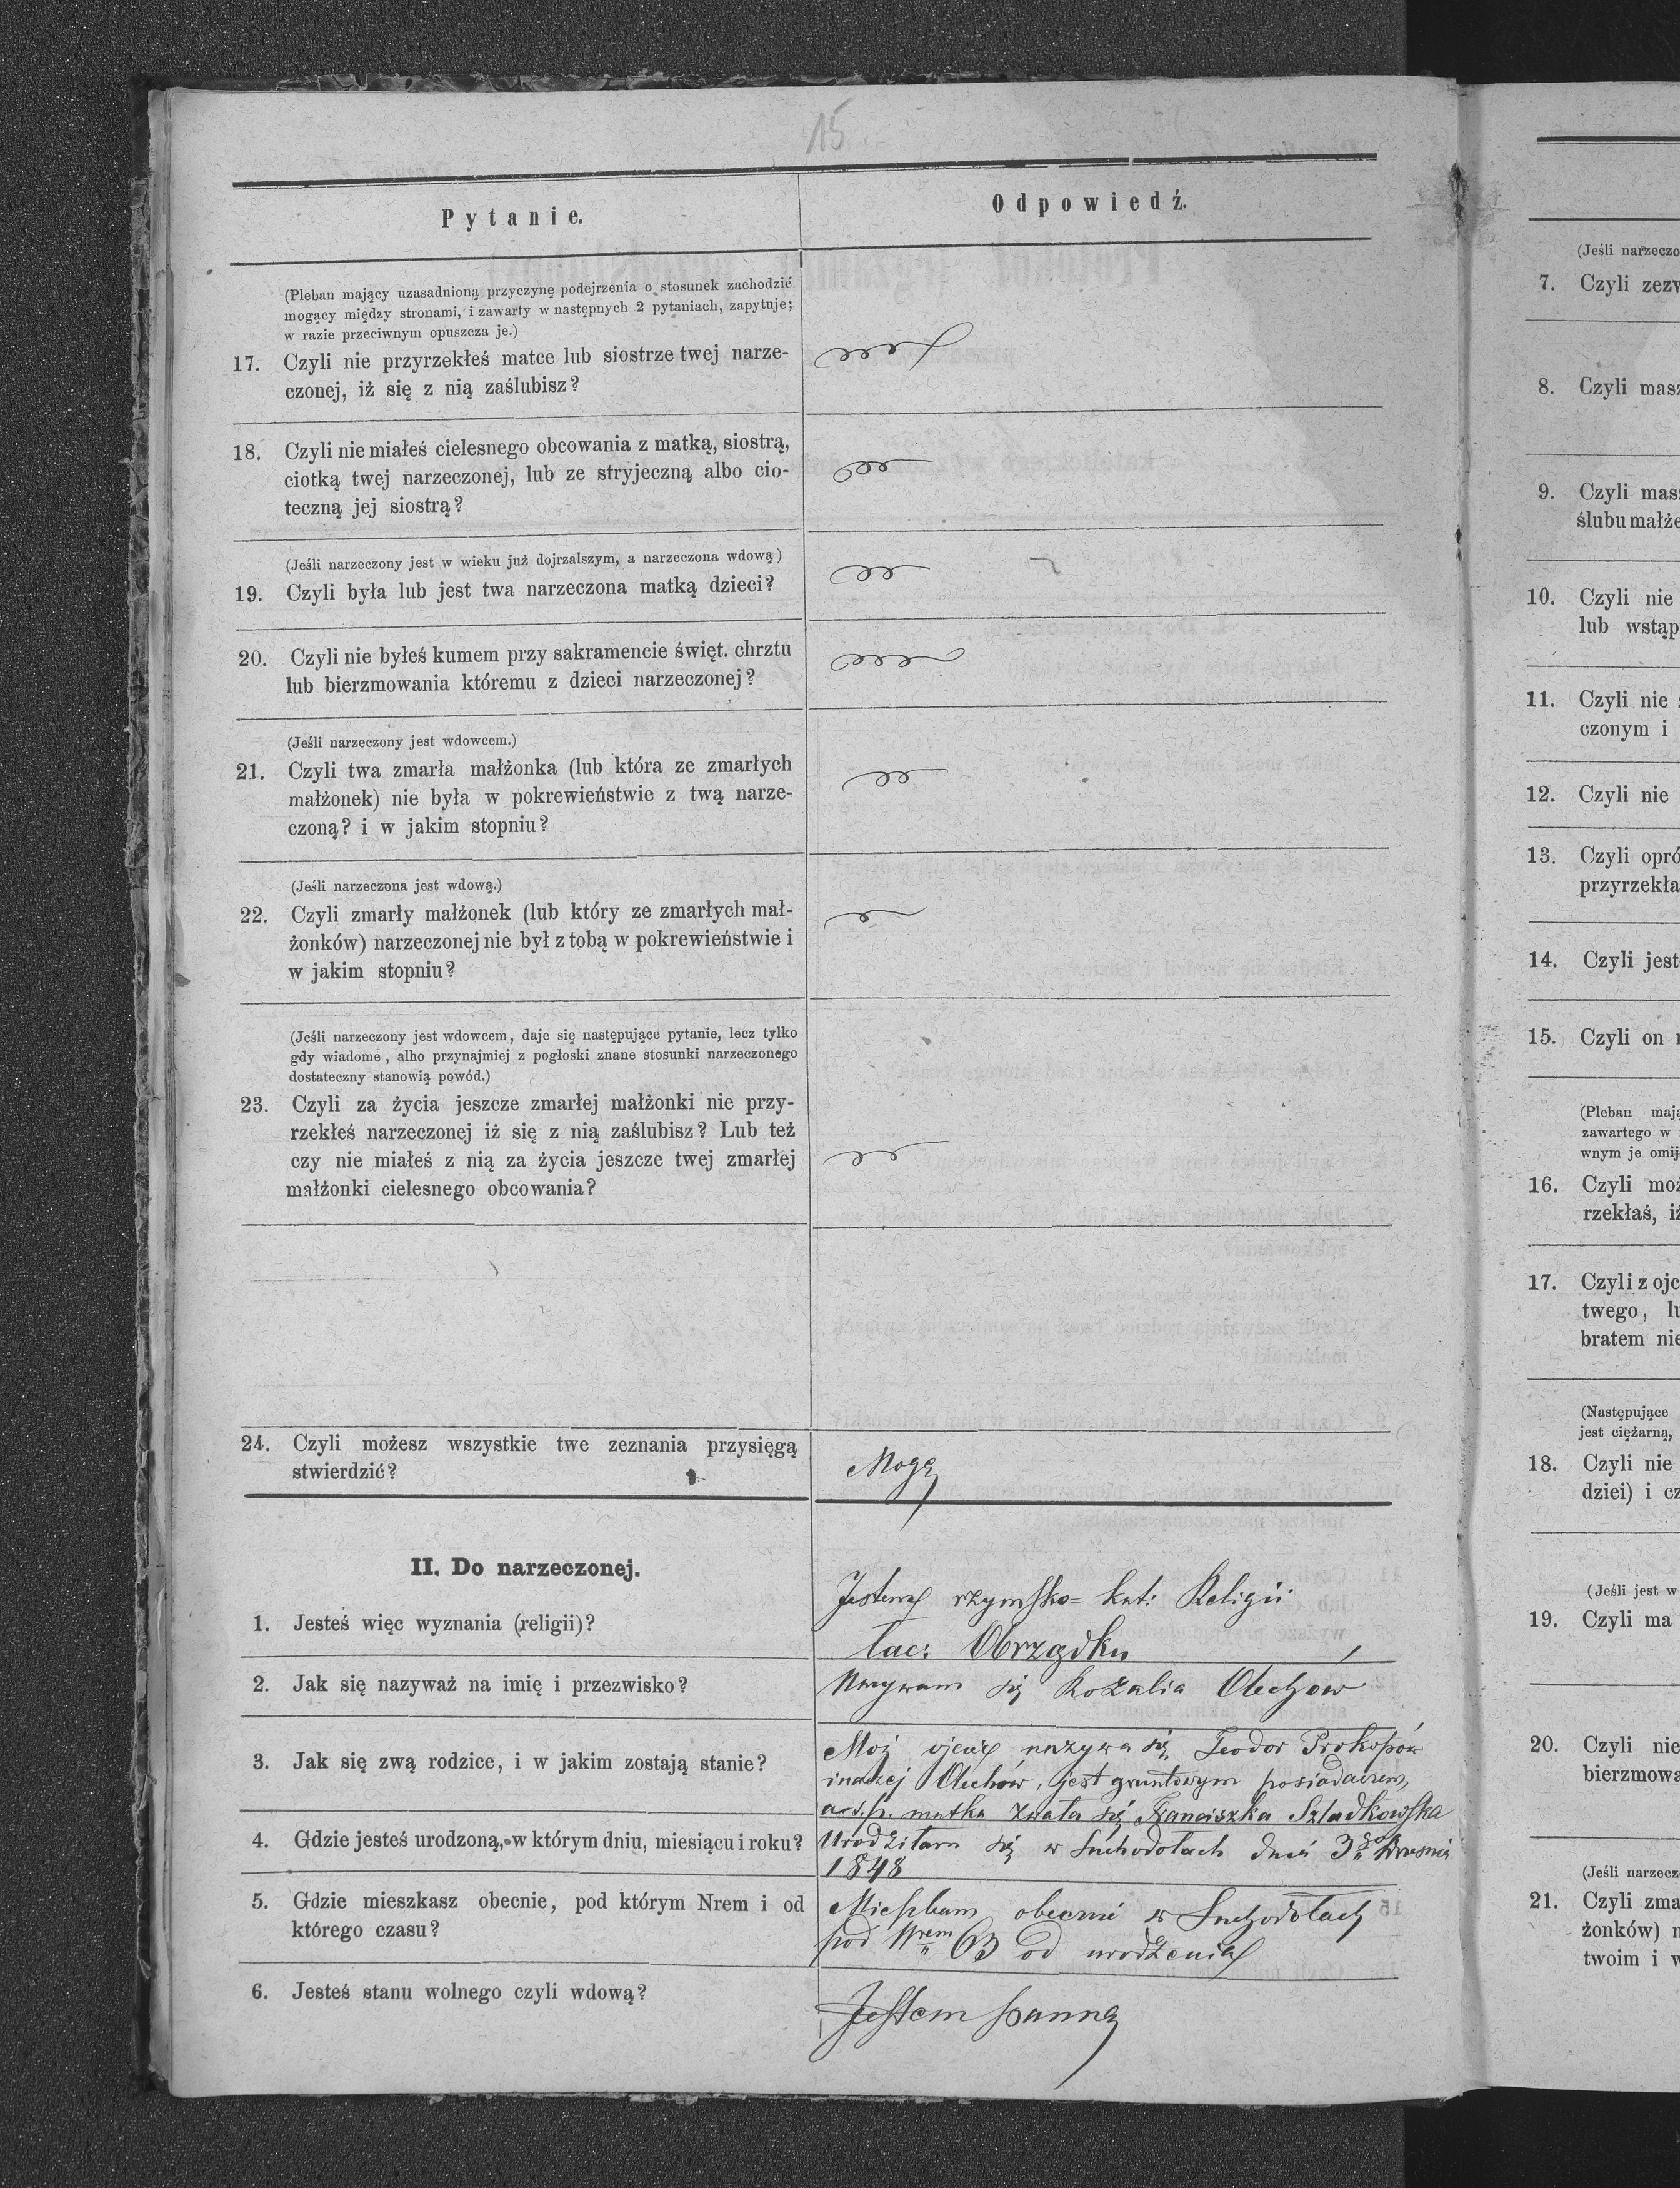 15.
Pytanie.
Odpowiedź.
(Pleban mający uzasadnioną przyczynę podejrzenia o stosunek zachodzić
mogący między stronami, i zawarty w następnych 2 pytaniach, zapytuje;
w razie przeciwnym opuszcza je.)
17. Czyli nie przyrzekłeś matce lub siostrze twej narze-
czonej, iż się z nią zaślubisz?
18. Czyli nie miałeś cielesnego obcowania z matką, siostrą,
ciotką twej narzeczonej, lub ze stryjeczną albo cio-
teczną jej siostrą?
(Jeśli narzeczony jest w wieku już dojrzalszym, a narzeczona wdową)
19. Czyli była lub jest twa narzeczona matką dzieci?
20. Czyli nie byłeś kumem przy sakramencie święt. chrztu
lub bierzmowania któremu z dzieci narzeczonej?
(Jeśli narzeczony jest wdowcem.)
21. Czyli twa zmarła małżonka (lub która ze zmarłych
małżonek) nie była w pokrewieństwie z twą narze-
czoną? i w jakim stopniu?
(Jeśli narzeczona jest wdową.)
22. Czyli zmarły małżonek (lub który ze zmarłych mał-
żonków) narzeczonej nie był z tobą w pokrewieństwie i
w jakim stopniu?
(Jeśli narzeczony jest wdowcem, daje się następujące pytanie, lecz tylko
gdy wiadome, alho przynajmiej z pogłoski znane stosunki narzeczonego
dostateczny stanowią powód.)
23. Czyli za życia jeszcze zmarłej małżonki nie przy-
rzekłeś narzeczonej iż się z nią zaślubisz? Lub też
czy nie miałeś z nią za życia jeszcze twej zmarłej
małżonki cielesnego obcowania?
24. Czyli możesz wszystkie twe zeznania przysięgą
stwierdzić?
Mogę
II. Do narzeczonej.
1. Jesteś więc wyznania (religii)?
Jestem rzymsko= kat: Religii
łac: Obrządku
2. Jak się nazyważ na imię i przezwisko?
Nazywam się Rozalia Olechów
3. Jak się zwą rodzice, i w jakim zostają stanie?
Mój ojciec nazywa się Teodor Prokopów
inaczej Olechów, jest gruntowym posiadaczem,
a ś.p. matka zwała się Franciszka Szladkowska
4. Gdzie jesteś urodzoną, w którym dniu, miesiącu i roku?
Urodziłam się w Suchodołach dnia 3go Wresnia
1848
5. Gdzie mieszkasz obecnie, pod którym Nrem i od
którego czasu?
Mieszkam obecnie w Suchodołach
pod Nrem 63 od urodzenia
6. Jesteś stanu wolnego czyli wdową?
Jestem panną
(Jeśli narzeczo
7. Czyli zezw
8. Czyli masz
9. Czyli mas
ślubu małże
10. Czyli nie
lub wstąp
11. Czyli nie
czonym i
12. Czyli nie
13. Czyli opró
przyrzekła
14. Czyli jest
15. Czyli on
(Pleban mają
zawartego w
wnym je omij
16. Czyli moż
rzekłaś, iż
17. Czyli z ojc
twego, lu
bratem nie
(Następujące
jest ciężarną,
18. Czyli nie
dziei) i cz
(Jeśli jest w
19. Czyli ma
20. Czyli nie
bierzmowa
(Jeśli narzecz
21. Czyli zma
żonków) n
twoim i w